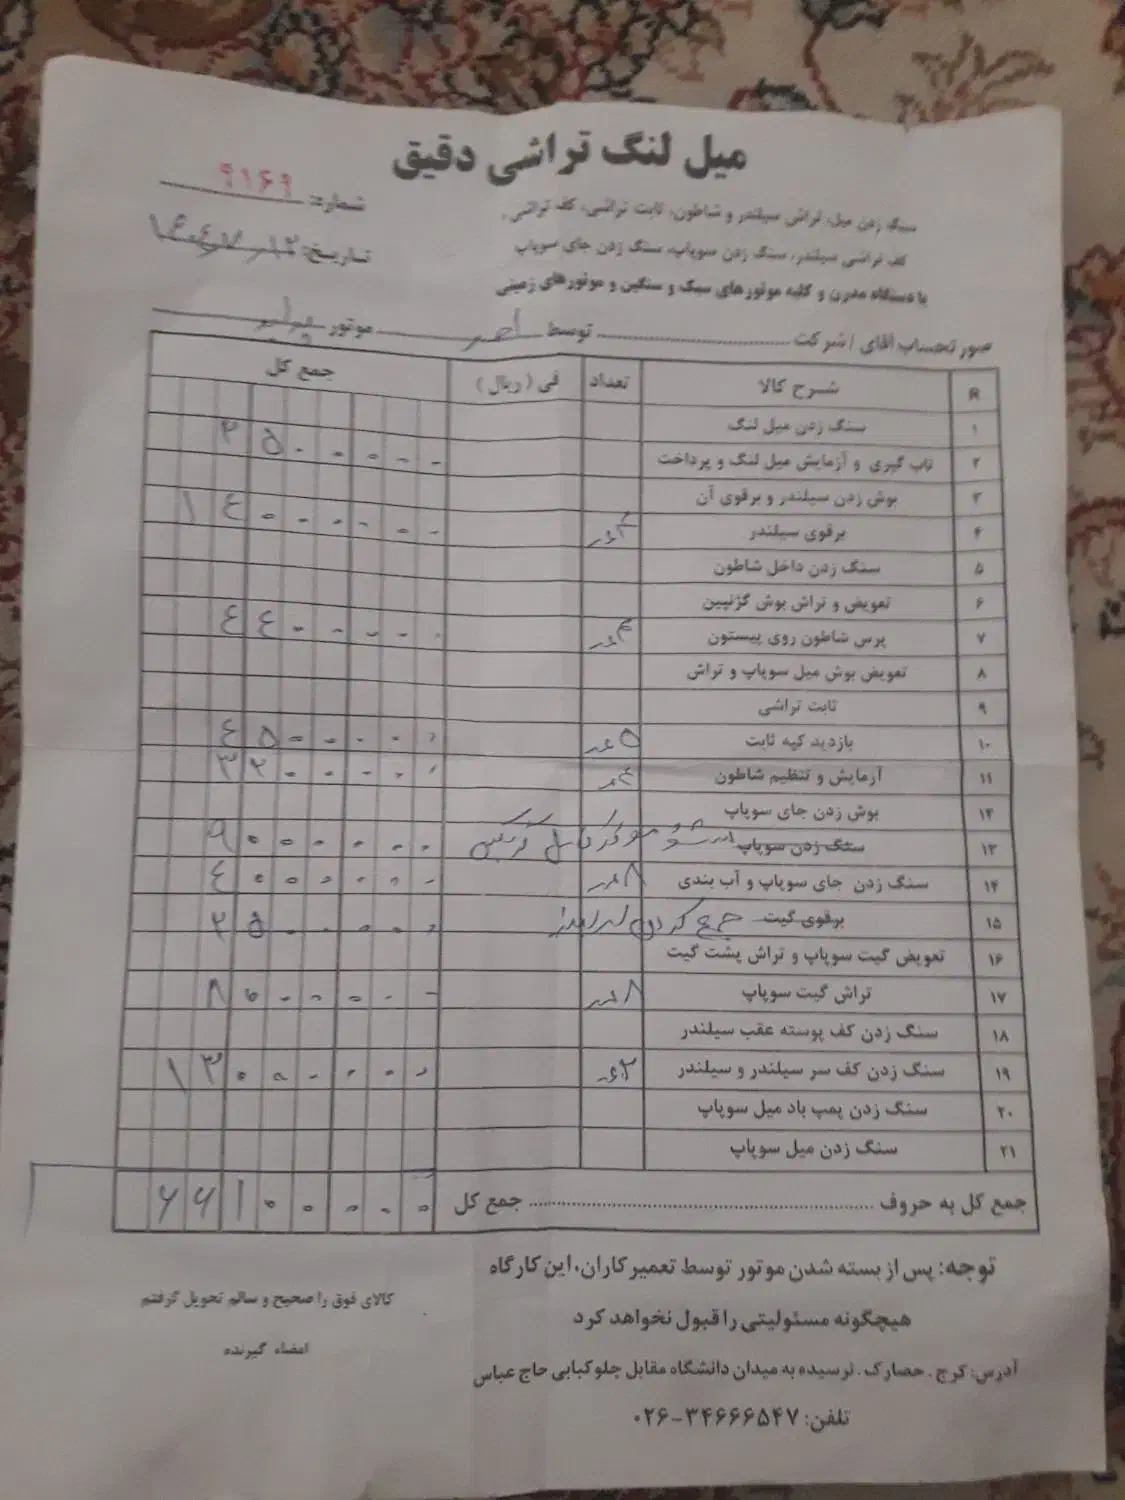 میل لنگ تراشی دقیق
شماره: ۹۱۶۹
سنگ زدن میل، تراش سیلندر و شاطون، ثابت تراشی، کف تراشی،
تاریخ:
کف تراشی سیلندر، سنگ زدن سوپاپ، سنگ زدن جای سوپاپ
با دستگاه مدرن و کلیه موتورهای سبک و سنگین و موتورهای زمینی
صورتحساب آقای / شرکت توسط موتور
R شرح کالا تعداد فی (ریال) جمع کل
۱ سنگ زدن میل لنگ ۲۵۰۰۰۰۰
۲ تاب گیری و آزمایش میل لنگ و پرداخت
۳ بوش زدن سیلندر و برقوی آن
۴ برقوی سیلندر ۴عدد ۱۴۰۰۰۰۰۰
۵ سنگ زدن داخل شاطون
۶ تعویض و تراش بوش گژنپین
۷ پرس شاطون روی پیستون ۴عدد ۴۴۰۰۰۰۰
۸ تعویض بوش میل سوپاپ و تراش
۹ ثابت تراشی
۱۰ بازدید کپه ثابت ۵عدد ۴۵۰۰۰۰۰
۱۱ آزمایش و تنظیم شاطون ۴عدد ۳۲۰۰۰۰۰
۱۲ بوش زدن جای سوپاپ
۱۳ سنگ زدن سوپاپ ۹۰۰۰۰۰۰
۱۴ سنگ زدن جای سوپاپ و آب بندی ۸عدد ۴۰۰۰۰۰۰
۱۵ برقوی گیت جمع کردن ۲۵۰۰۰۰۰
۱۶ تعویض گیت سوپاپ و تراش پشت گیت
۱۷ تراش گیت سوپاپ ۸عدد ۸۰۰۰۰۰۰
۱۸ سنگ زدن کف پوسته عقب سیلندر
۱۹ سنگ زدن کف سر سیلندر و سیلندر ۲عدد ۱۳۰۰۰۰۰۰
۲۰ سنگ زدن پمپ باد میل سوپاپ
۲۱ سنگ زدن میل سوپاپ
جمع کل به حروف جمع کل ۶۶۱۰۰۰۰۰
توجه: پس از بسته شدن موتور توسط تعمیرکاران، این کارگاه
هیچگونه مسئولیتی را قبول نخواهد کرد
کالای فوق را صحیح و سالم تحویل گرفتم
امضاء گیرنده
آدرس: کرج . حصارک . نرسیده به میدان دانشگاه مقابل چلوکبابی حاج عباس
تلفن: ۳۴۶۶۶۵۴۷-۰۲۶